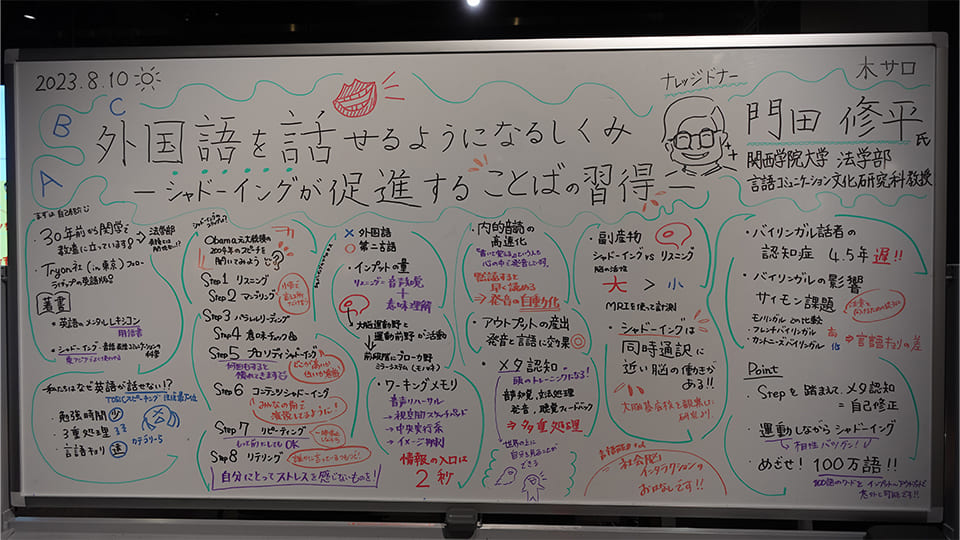 2023.8.10
木サロ
ナレッジドナー
A B C
外国語を話せるようになるしくみ
ーシャドーイングが促進することばの習得ー
門田 修平 氏
関西学院大学 法学部
言語コミュニケーション文化研究科教授
まずは自己紹介
・30年前から関学で
教壇に立っています!
法学部
著書
・英語のメンタルレキシコン
私たちはなぜ英語が話せない!?
・勉強時間 少
・3重処理
・言語キョリ 遠
カテゴリー5
Obama元大統領の
スピーチを
聞いてみよう
Step1 リスニング
Step2 マンブリング
Step3 パラレルリーディング
Step4 意味チェック
Step5 プロソディシャドーイング
何回もすると
慣れてきます
Step6 コンテンツシャドーイング
みんなの前で
演説してるように!
Step7 リピーティング
Step8 リテリング
自分にとってストレスを感じないものを!
× 外国語
○ 第二言語
・インプットの量
リスニング=音声知覚
+
意味理解
大脳運動野と
運動前野が活動
前段階にブローカ野
ミラーシステム(モノマネ)
・ワーキングメモリ
音声リハーサル
→視空間スケッチパッド
→中央実行系
→イメージ抑制
情報の入口は
2秒
・内的音読の
高速化
黙読すると
早く読める
⇒発音の自動化
・アウトプットの産出
発音と言語に効果◎
・メタ認知
脳のトレーニングになる!
発音、聴覚フィードバック
⇒多重処理
世界の上に
自分を見ることが
できる
・副産物
シャドーイングvsリスニング
脳の活性
大 > 小
MRIを使って計測
・シャドーイングは
同時通訳に
近い脳の働きが
ある!!
社会脳
インタラクションの
おはなしです!!
・バイリンガル話者の
認知症 4.5年遅!!
・バイリンガルの影響
サイモン課題
モノリンガルとの比較
・フレンチバイリンガル 高
・カントニーズバイリンガル 低
⇒言語キョリの差
Point
Stepを踏まえて、メタ認知
=自己修正
運動しながらシャドーイング
→相性バツグン!
めざせ!100万語!!